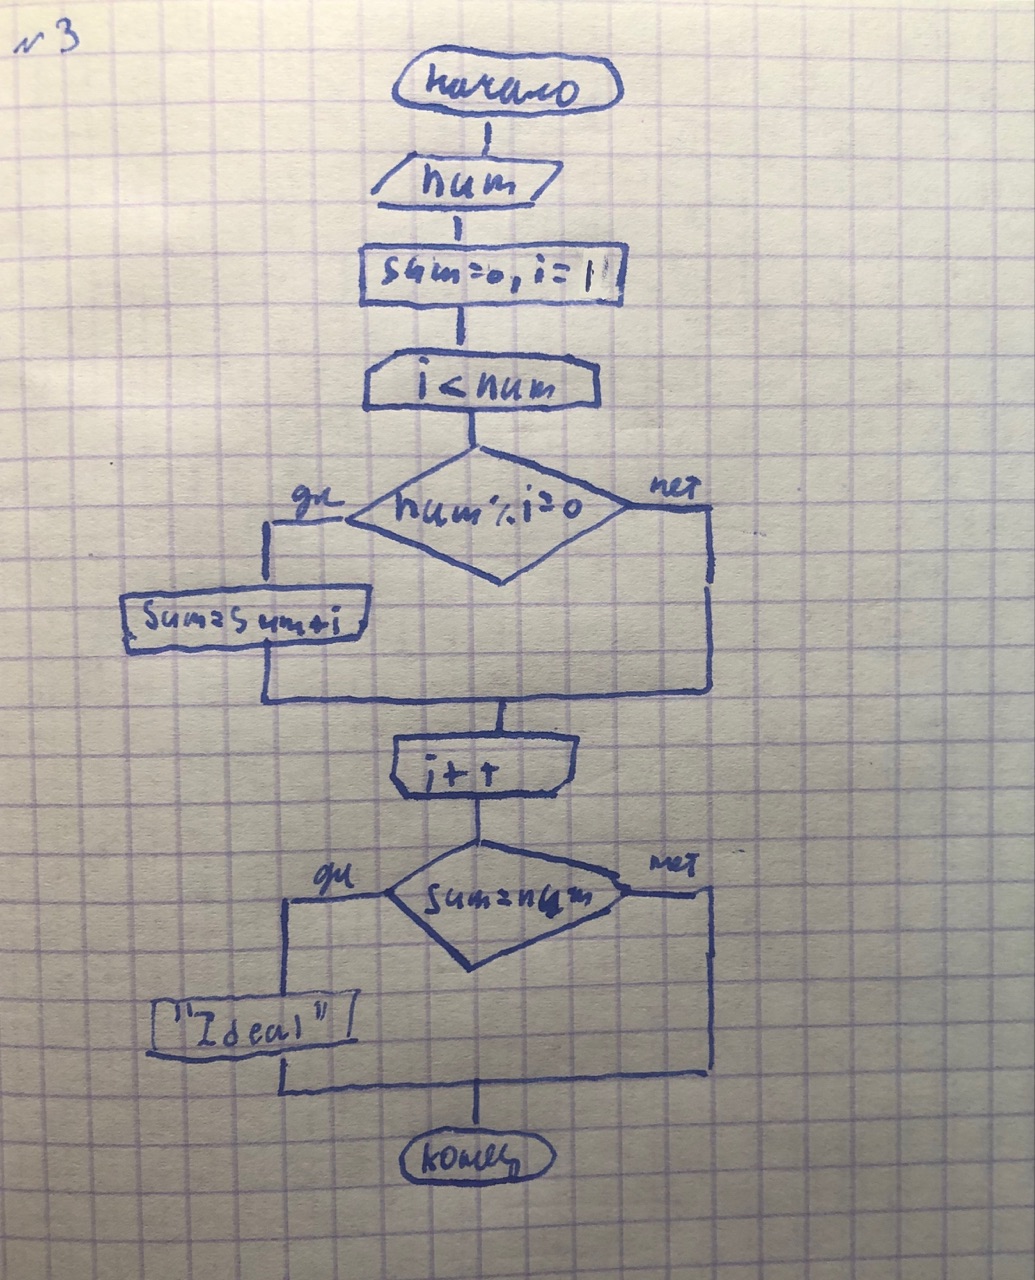 №3
начало
num
sum=0, i=1
i<num
да
num%i=0
нет
sum=sum+i
i++
да
sum=num
нет
"Ideal"
конец